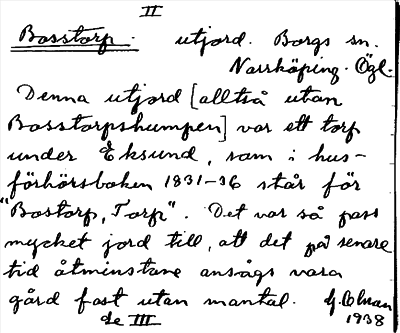 II
Bosstorp. utjord. Borgs sn.
Norrköping. Ögl.
Denna utjord [alltså utan
Bosstorpshumpen] var ett torp
under Eksund, som i hus-
förhörsboken 1831-36 står för
"Bostorp, Torp". Det var så pass
mycket jord till, att det på senare
tid åtminstone ansågs vara
gård fast utan mantal. G. Olman
se III 1938